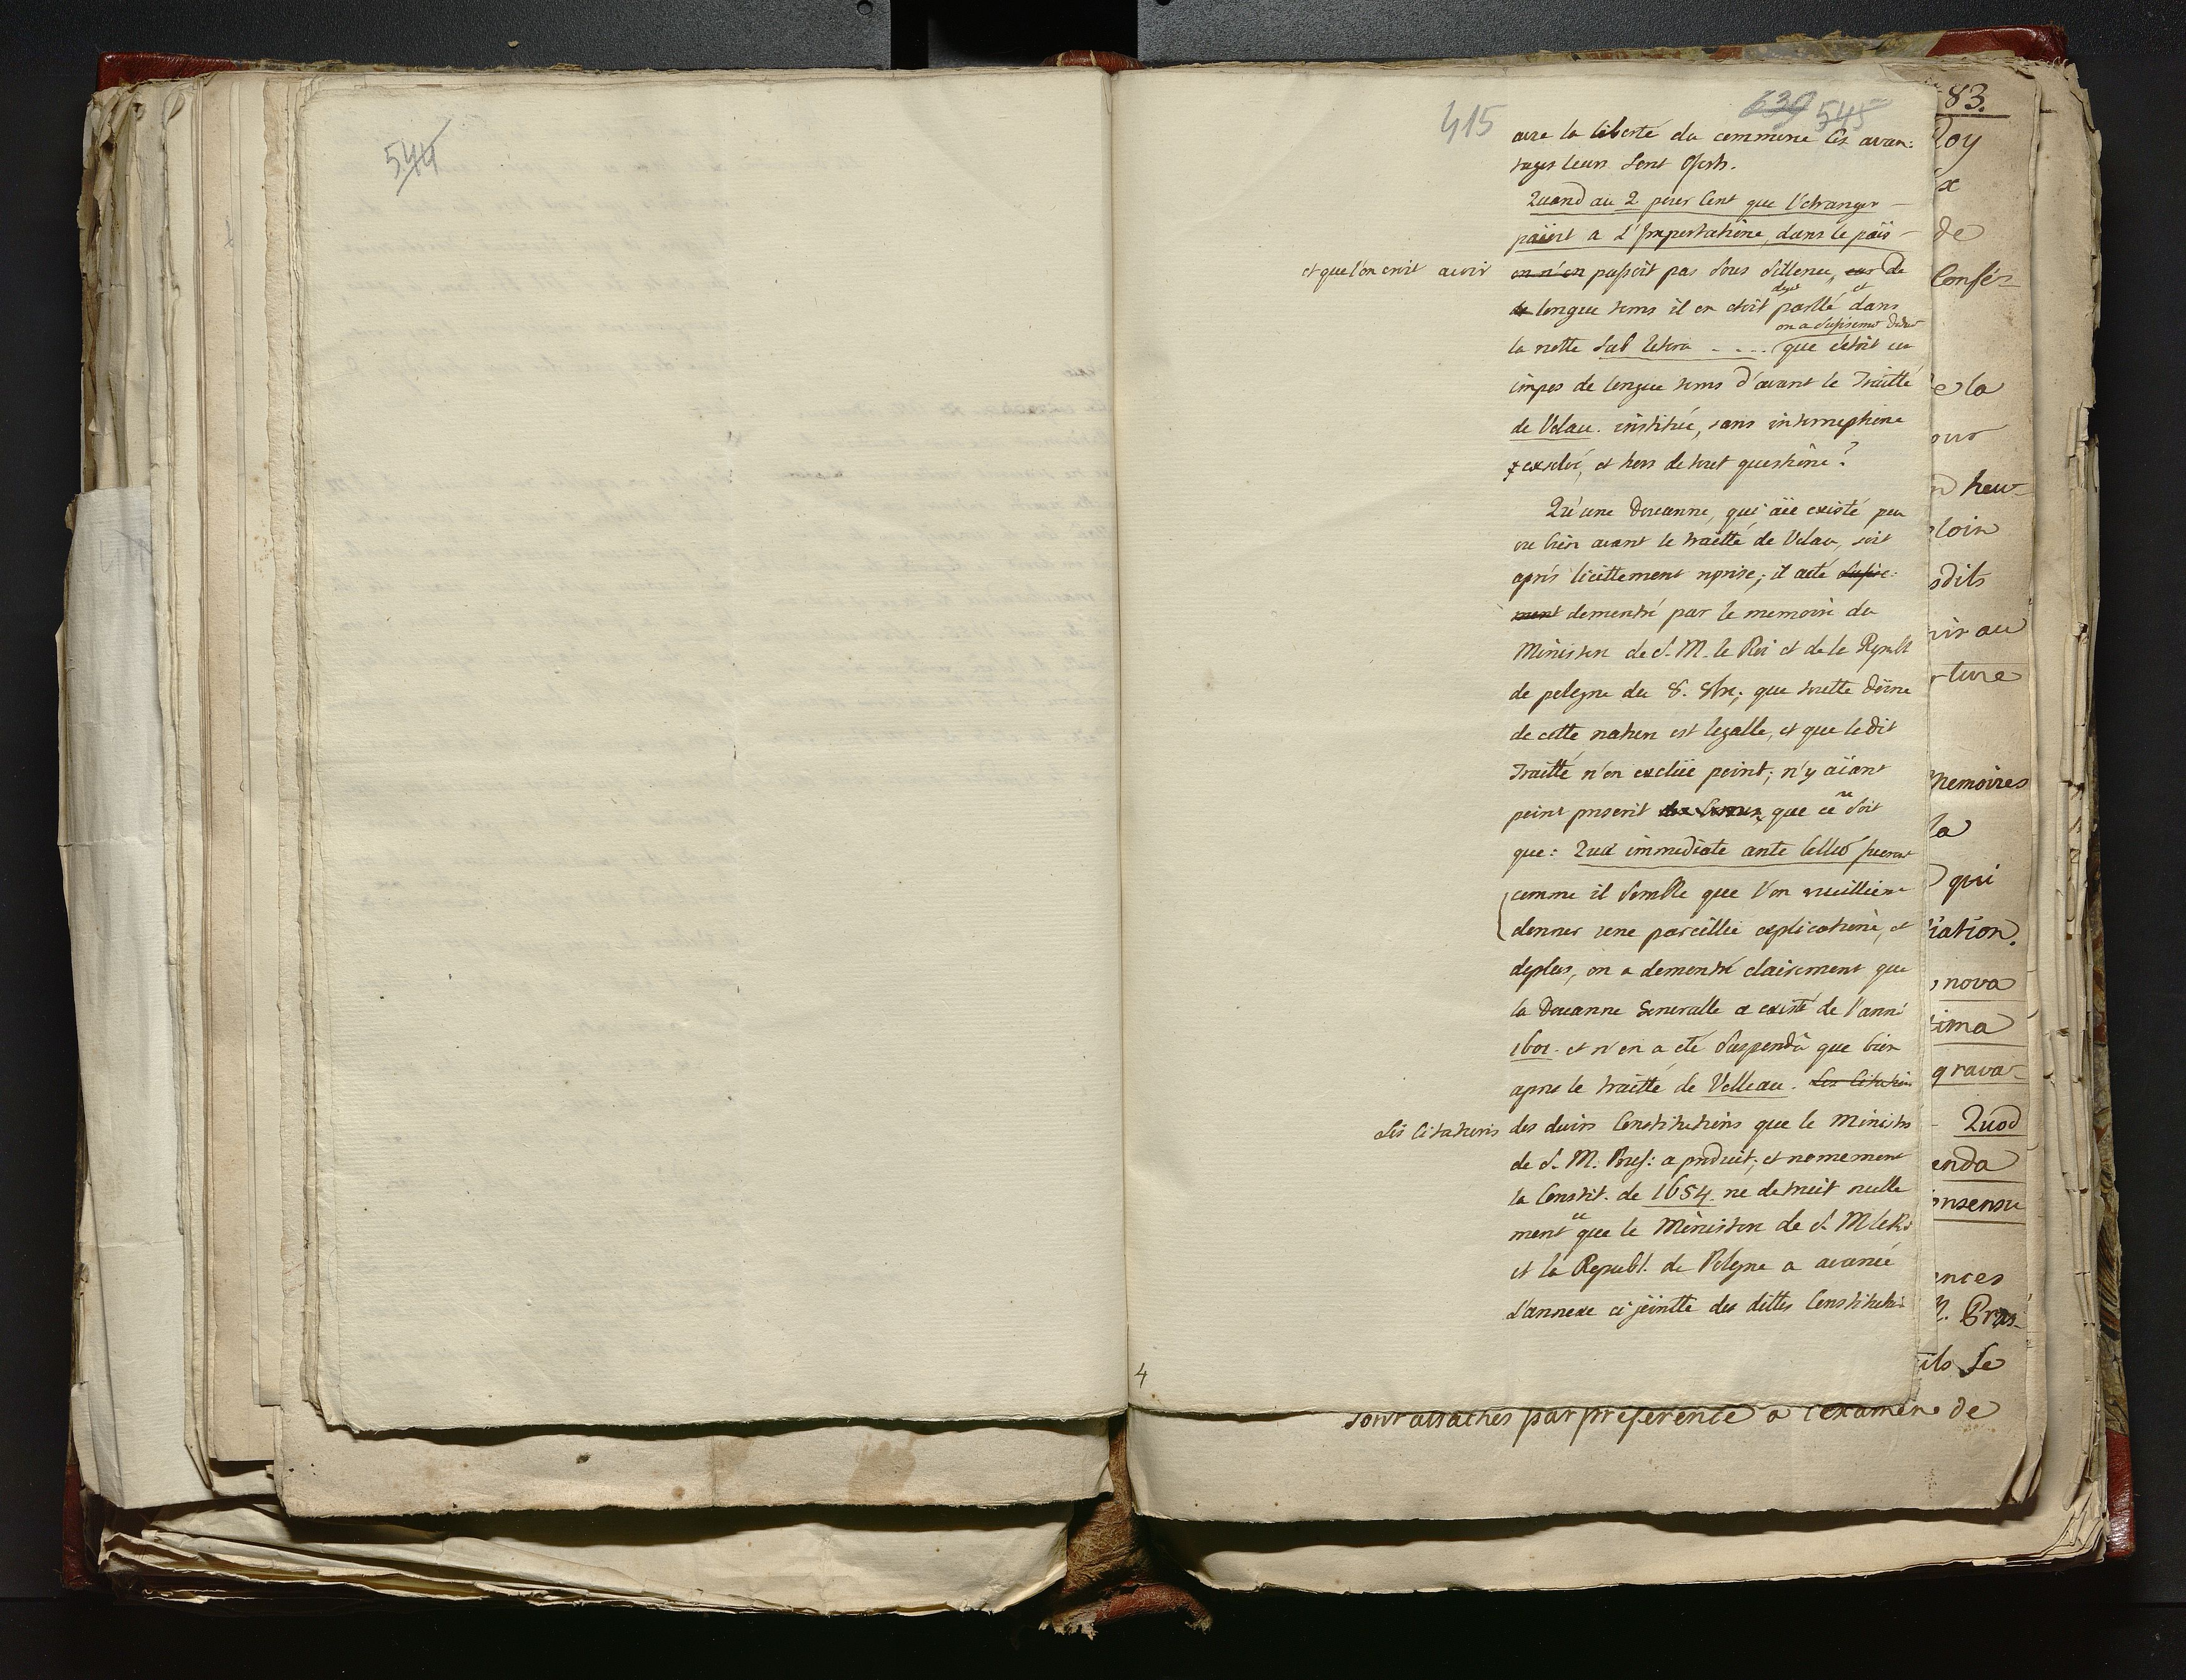 544
415
639 545
avec la liberté du commerce les avan:
tages leurs sont oferts.
Quand au 2 pour Cent que l'etranger
païent a l'Importatione, dans le païs
et que l'on croit avoir on n'en passoit pas sous sillence, car de
de longue tems il en etoit deja parllé et dans
on a
la notte sub littera .... que c'étoit un
impos de longue tems d'avant le Traitté
de Velau. instituée, sans interruptione
exselvé, et hors de tout questione?
Qu'une Doüanne, qui aïe existé peu
ou bien avant le traitté de Velau, soit
aprés licittement reprise; il a eté
ment demontré par le memoire du
Ministere de S. M. le Roi et de la Republ
de pologne du 8. 8bre; que toutte döane
de cette nature est legalle, et que le dit
Traitté n'en exclüe point; n'y aïant
point prescrit que ce ne soit
que: Quæ immediate ante bellum fuerant
comme il semble que l'on vueillienne
donner une pareillie explicatione, et
deplus, on a demontré clairement que
la Doüanne Generalle a existé de l'anné
1601. et n'en a eté suspendü que bien
apres le traitté de Velleau. Les Citations
Les Citations des divers Constitutions que le Ministre
de S. M. Prus: a produit; et nomement
la Constit. de 1654. ne detruit nulle
ment ce que le Ministere de S. M le Roi
et la Republ. de Pologne a avancé
L'annexe ci jointte des dittes Constitutions
4
83.
Roy
de
Confér-
e la
our
heu-
loin
sdits
rir au
rture
Memoires
la
qui
iation.
nova
tima
grava-
Quod
enda
onsensu
ences
M. Prus-
ils se
sont attachés par preference a l'examen de